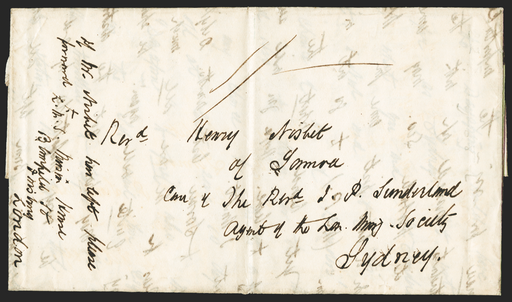 Revd. Henry Nisbet
of Samoa
Care of The Revd. J. P. Sunderland
Agent of the Lon. Miss. Society
Sydney.
If Mr. Nisbet has left please
forward to
L.M.S. Mission House
Blomfield St
Finsbury
London